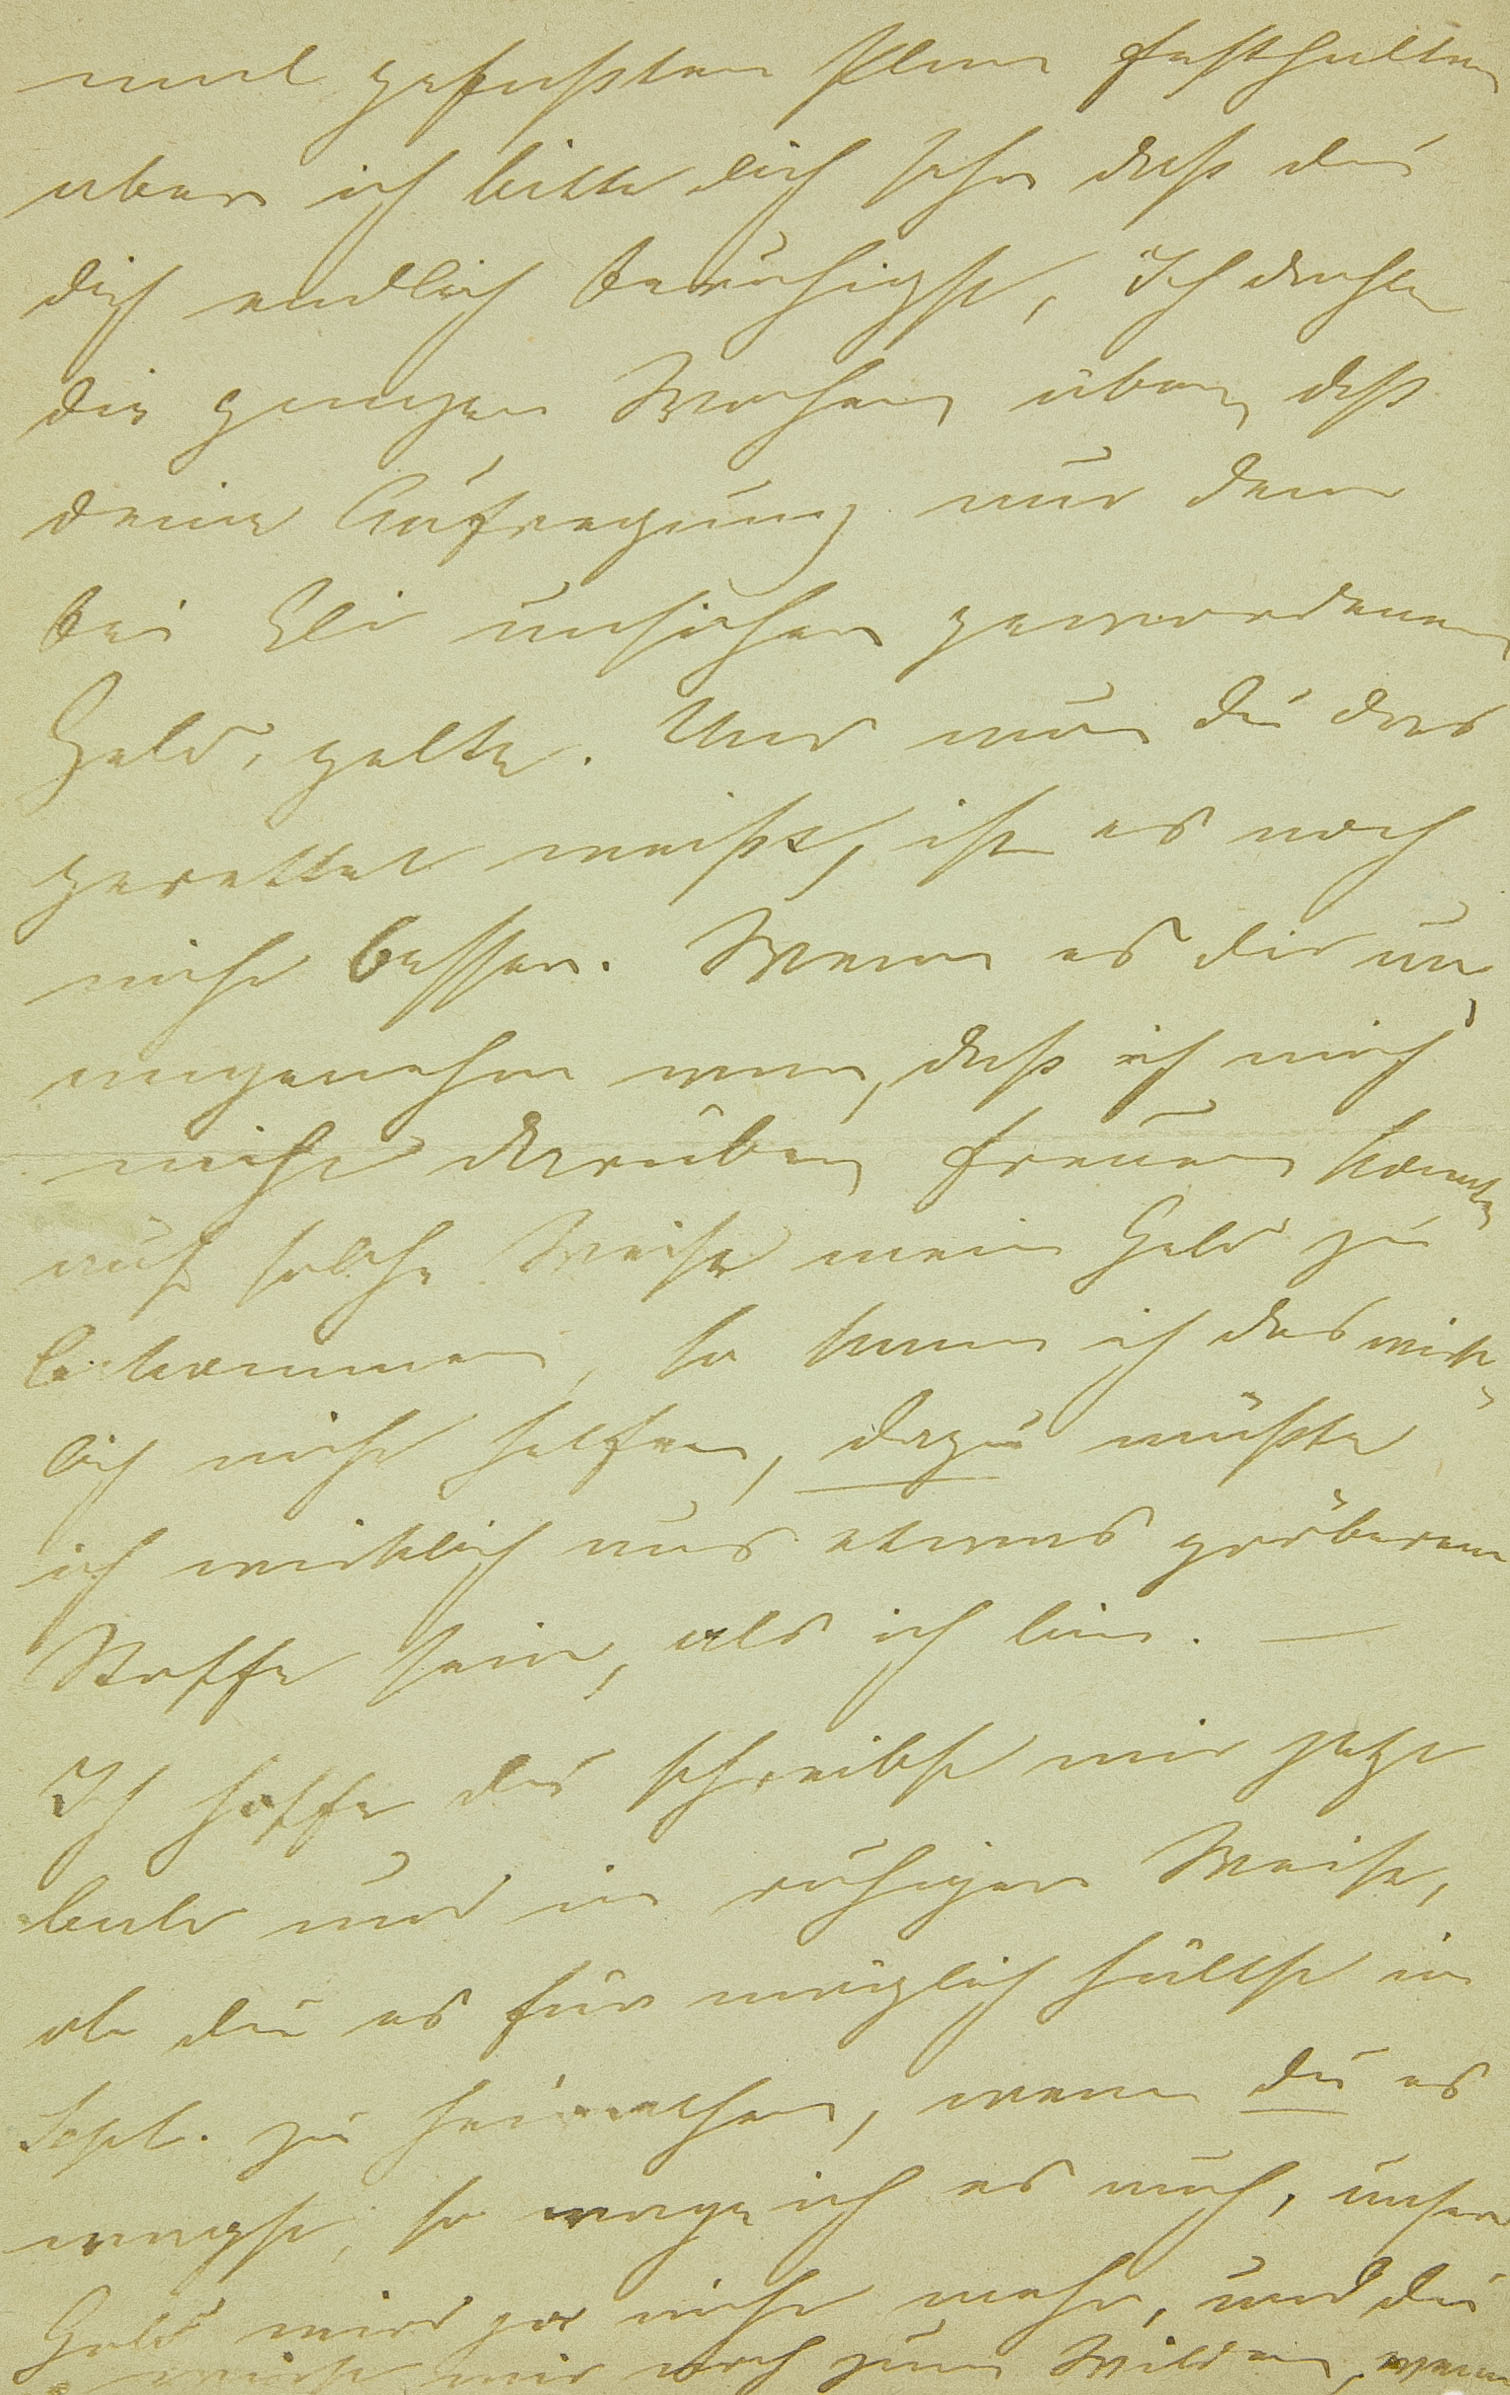 mal gefaßten Plan festhalten
aber ich bitte dich sehr daß du
dich endlich beruhigst, Ich dachte
die ganzen Wochen über, daß
deine Aufregung nur dem
bei Eli unsicher gewordenen
Gelde, gelte. Und nun du das
gerettet weißt, ist es noch
nicht besser. Wenn es dir un„
angenehm war, daß ich mich
nicht darüber freuen konnte
auf solche Weise mein Geld zu
bekommen, so kann ich das wirk„
lich nicht helfen, dazu müßte
ich wirklich aus etwas gröberem
Stoffe sein, als ich bin. —
Ich hoffe du schreibst mir jetzt
bald und in ruhiger Weise,
ob du es für möglich hältst im
Sept. zu heirathen, wenn du es
wagst, so wage ich es auch, unser
Geld wird ja nicht mehr, und du
wirst mir noch zum Wilden, wenn